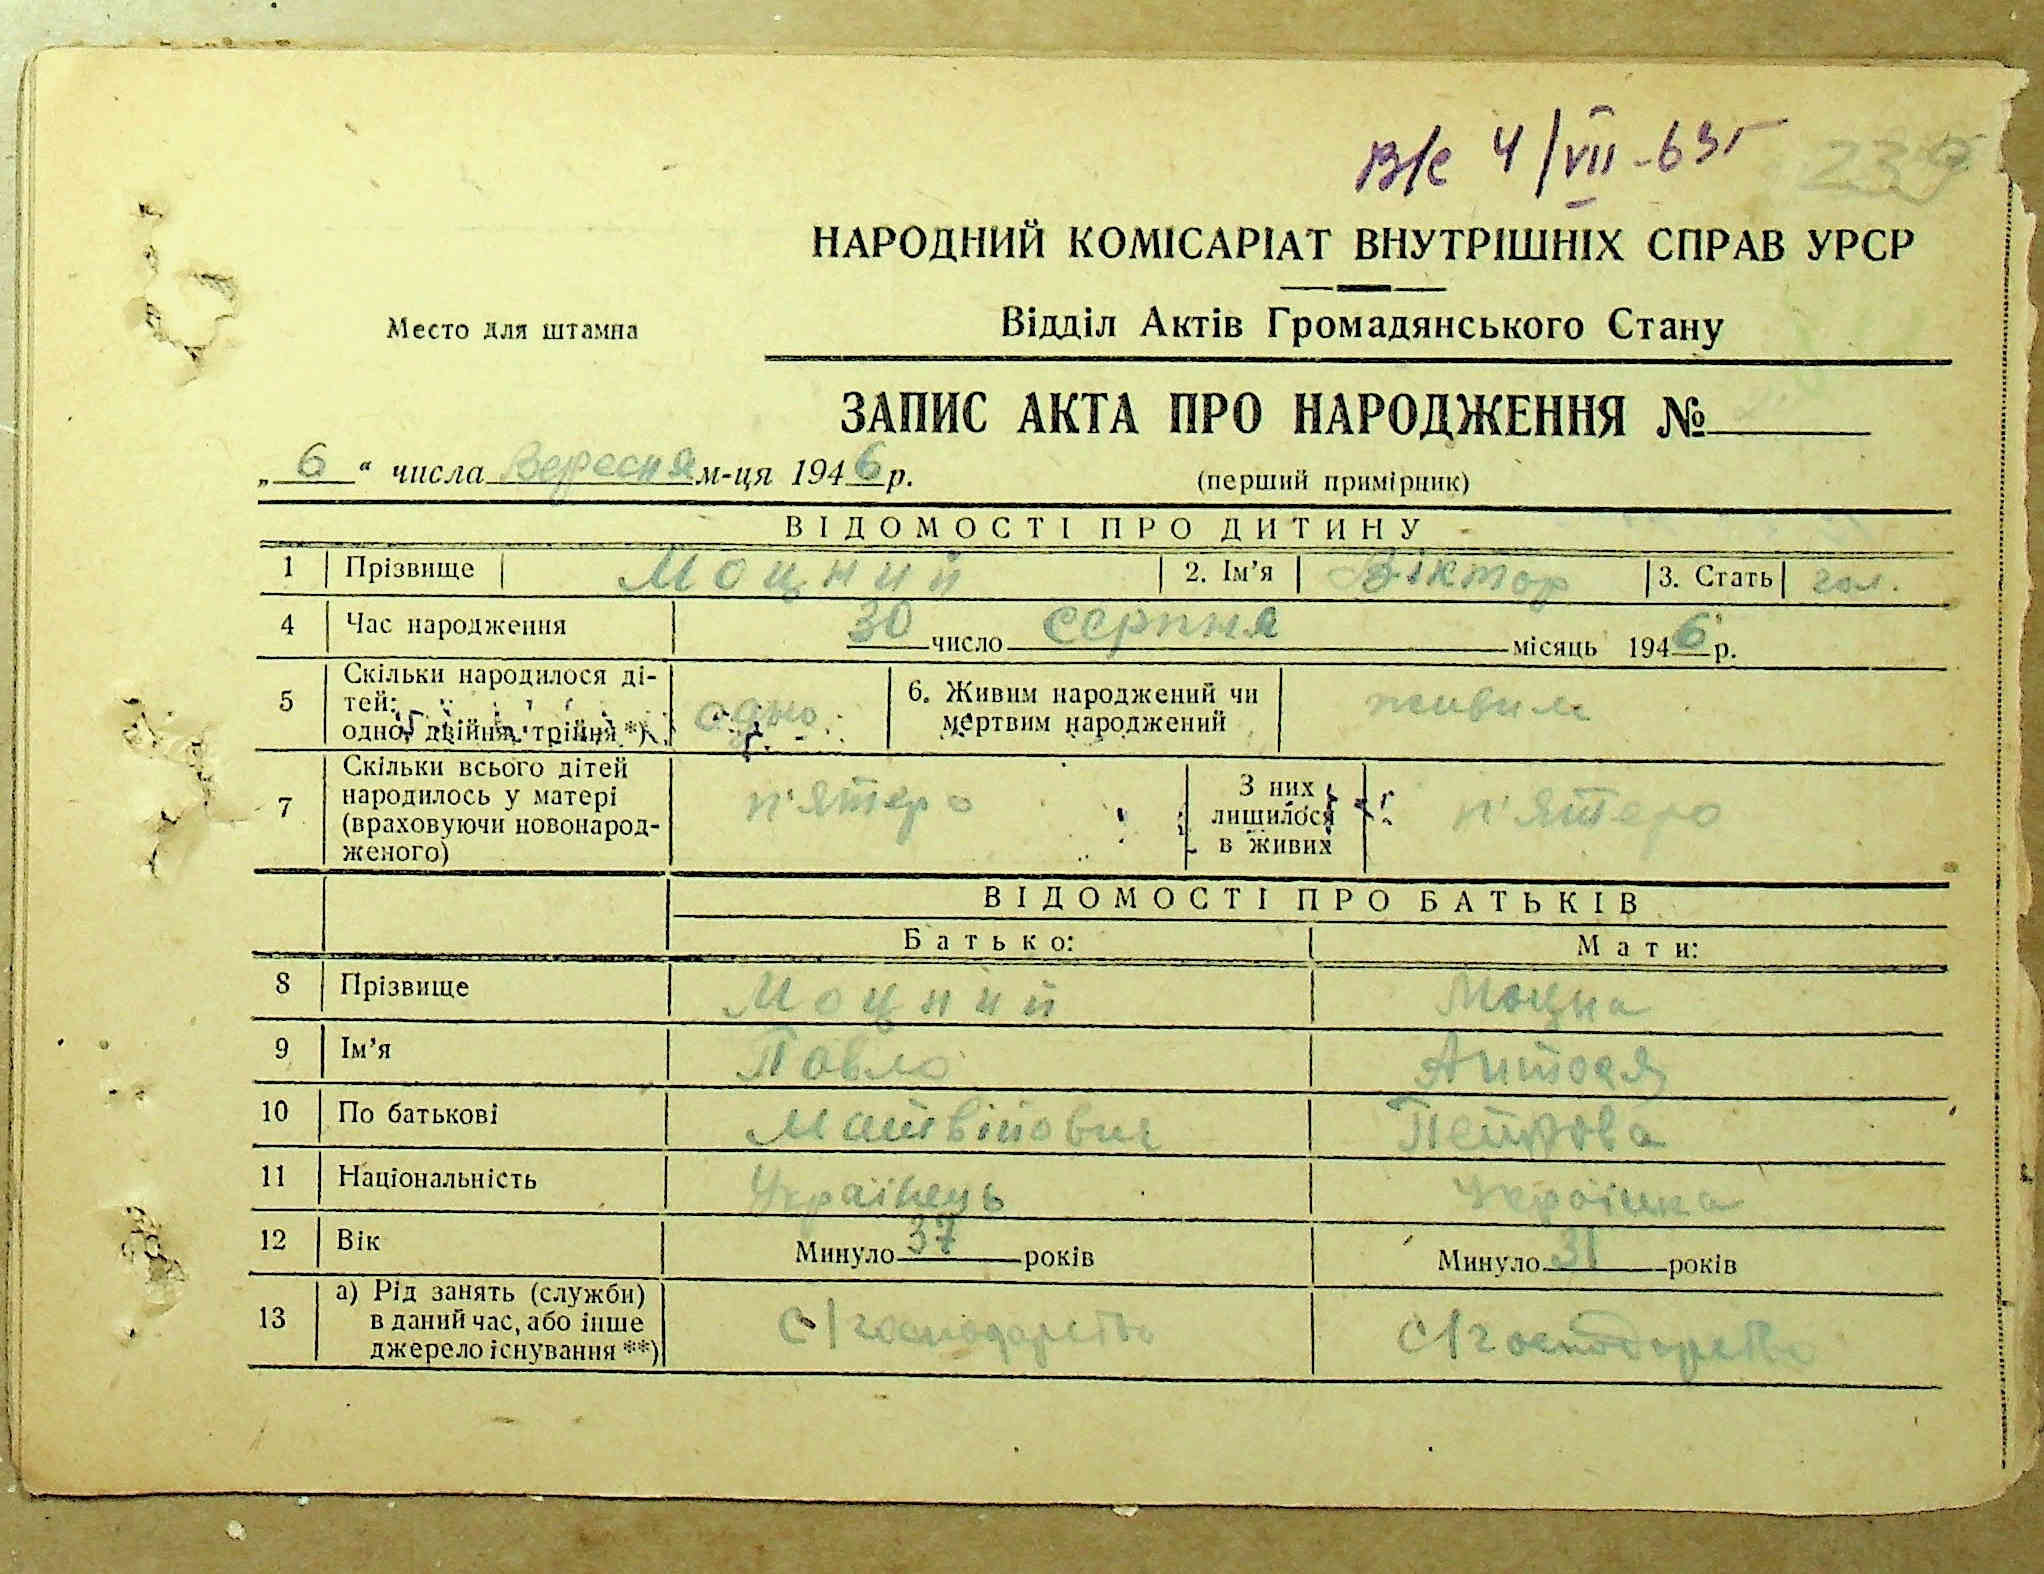 В/с 4/VII-63г
239
НАРОДНИЙ КОМІСАРІАТ ВНУТРІШНІХ СПРАВ УРСР
Место для штампа
Відділ Актів Громадянського Стану
ЗАПИС АКТА ПРО НАРОДЖЕННЯ №
„6“ числа Вересня м-ця 1946 р.
(перший примірник)
ВІДОМОСТІ ПРО ДИТИНУ
1 Прізвище Моцний 2. Ім’я Віктор 3. Стать чол.
4 Час народження 30 число серпня місяць 1946 р.
5 Скільки народилося ді-
тей:
одно, двійня, трійня *) одно 6. Живим народжений чи
мертвим народжений живим
7 Скільки всього дітей
народилось у матері
(враховуючи новонарод-
женого) п'ятеро З них
лишилося
в живих п'ятеро
ВІДОМОСТІ ПРО БАТЬКІВ
Батько: Мати:
8 Прізвище Моцний Моцна
9 Ім’я Павло
10 По батькові Матвійович Петрова
11 Національність Українець Українка
12 Вік Минуло 37 років Минуло 31 років
13 а) Рід занять (служби)
в даний час, або інше
джерело існування **) с/господарство с/господарство